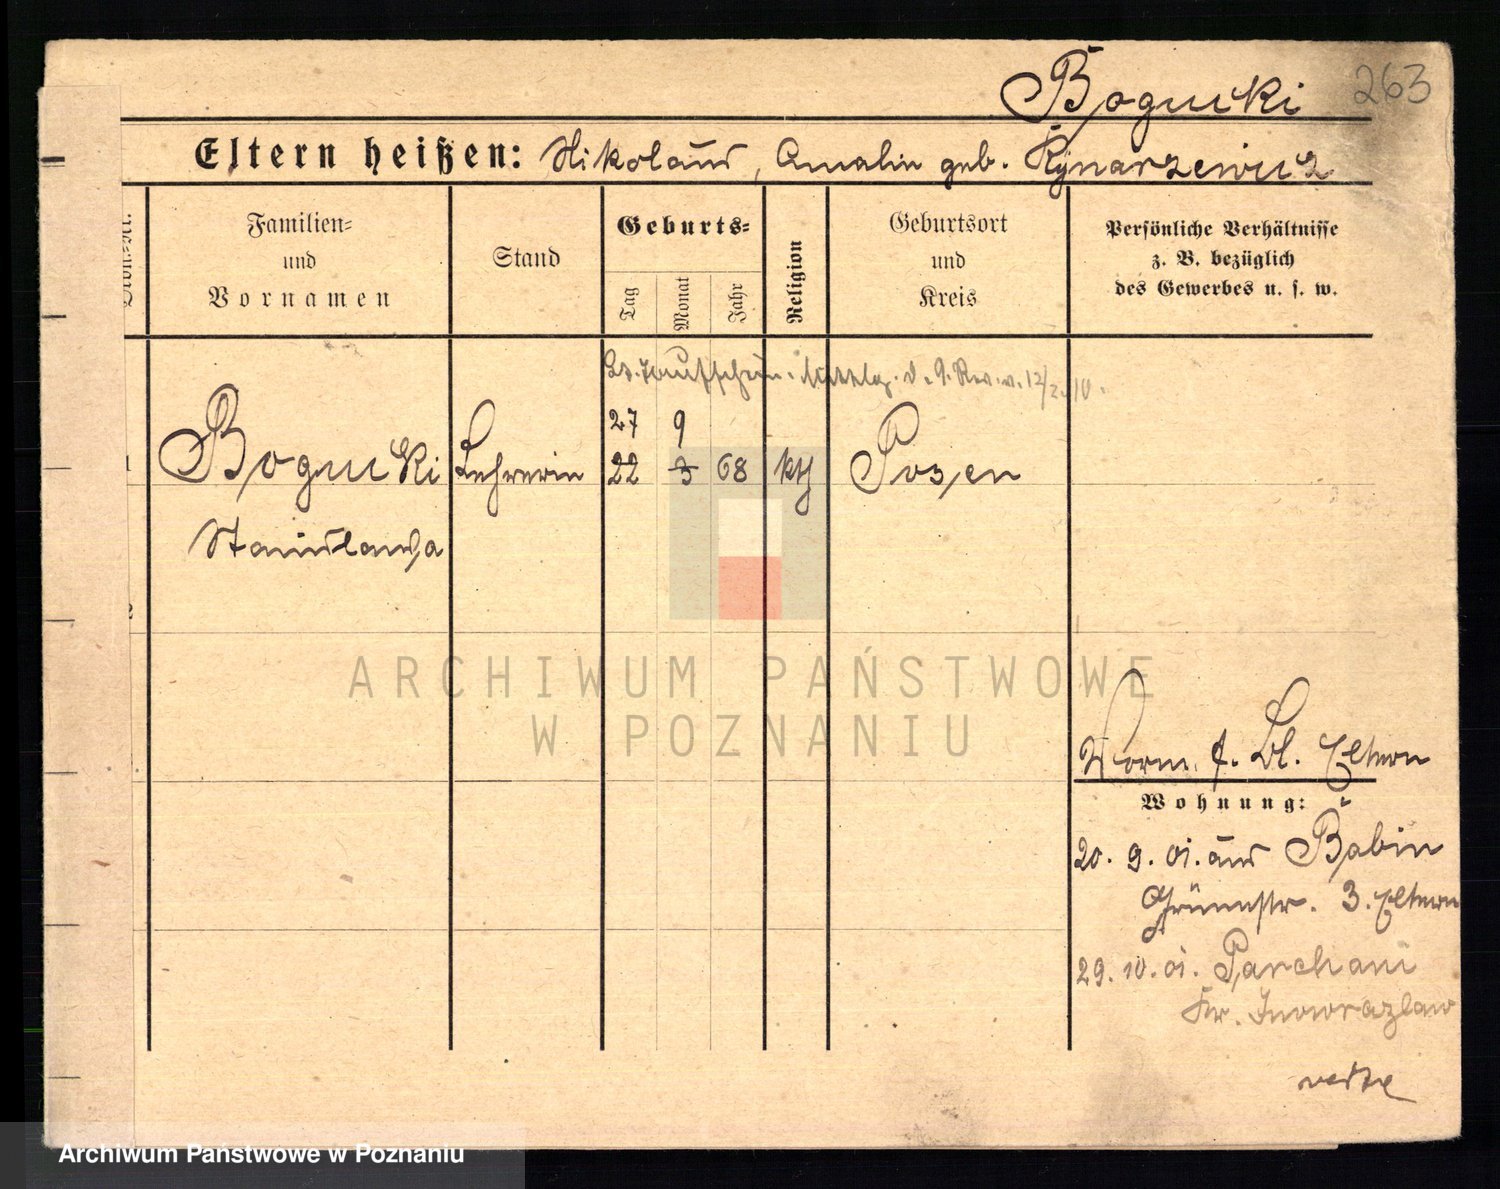 Bogucki 263
Eltern heißen: Nikolaus, Amalie geb. Rynarzewicz
Familien-
und
Vornamen
Stand
Geburts-
Tag
Monat
Jahr
Religion
Geburtsort
und
Kreis
Persönliche Verhältnisse
z. B. bezüglich
des Gewerbes u. s. w.
Lt. Taufschein v. 12/2. 10.
27 9
Bogucki Lehrerin 22 3 68 kth Posen
Stanislawa
ARCHIWUM PAŃSTWOWE
W POZNANIU
Eltern
Wohnung:
20. 9. 01. aus Babin
3. Eltern
29. 10. 01. Parchani
Kr. Inowrazlaw
Archiwum Państwowe w Poznaniu